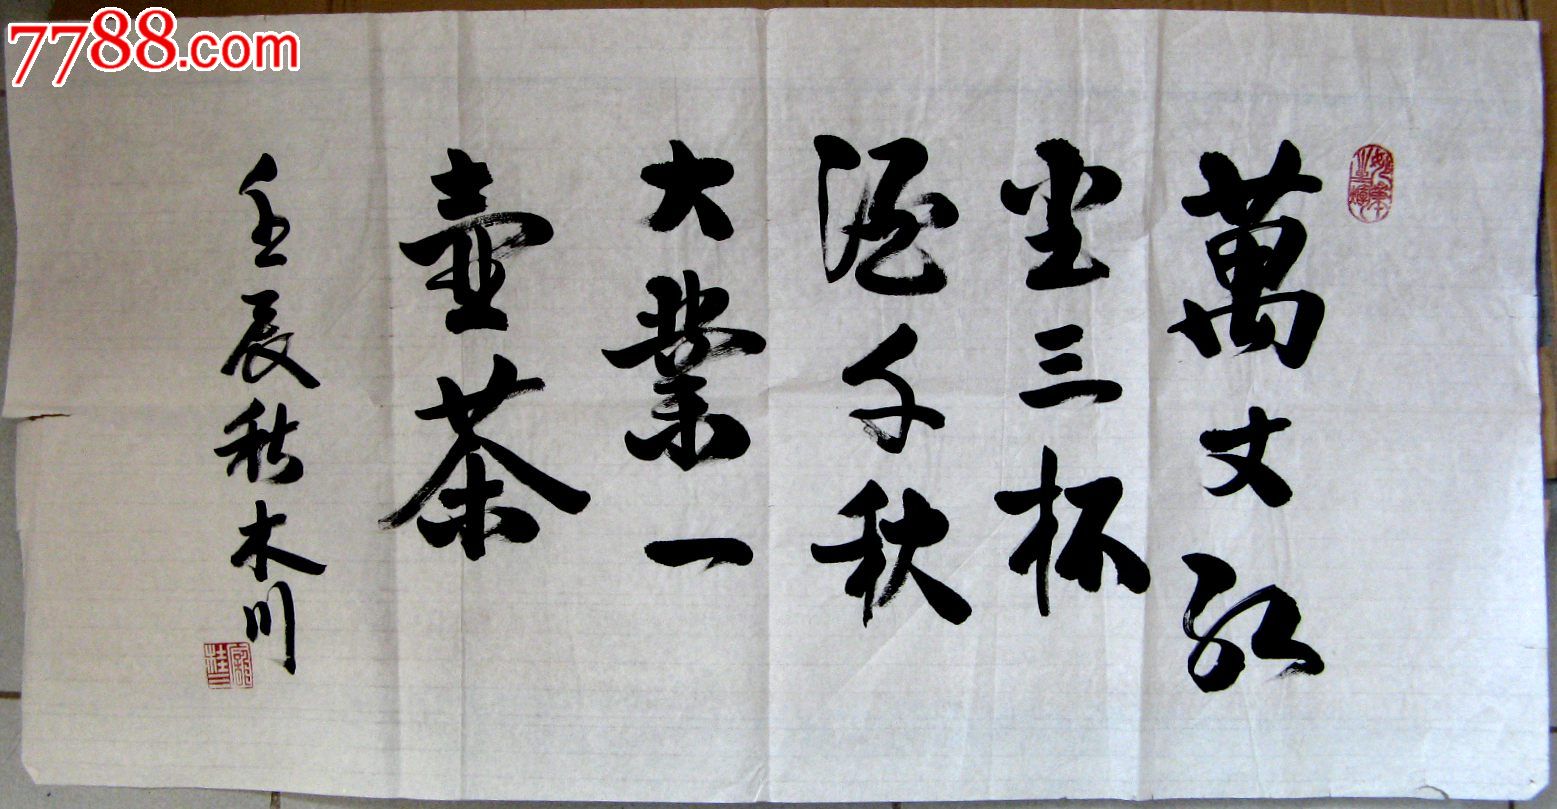 7788.com
萬丈紅
尘三杯
酒千秋
大業一
壺茶
壬辰秋木川